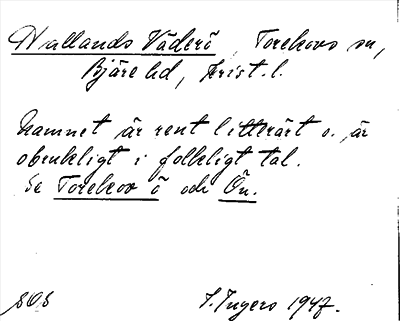 Hallands Väderö, Torekovs sn,
Bjäre hd, Krist. l.
Namnet är rent litterärt o. är
obrukligt i folkligt tal.
Se Torekov ö och Ön.
SOS S. Ingers 1947.